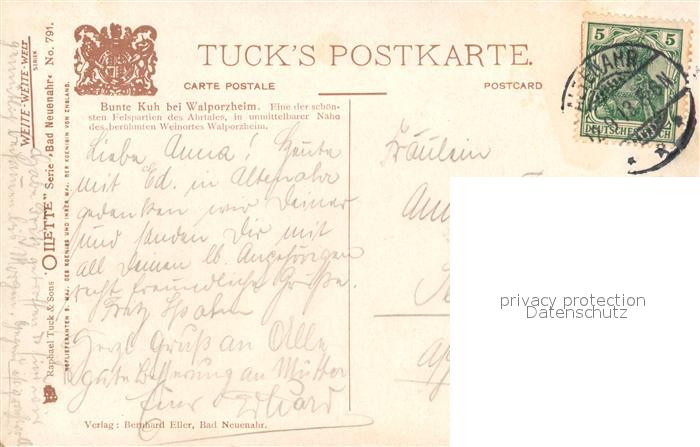 TUCK'S POSTKARTE.
CARTE POSTALE
POSTCARD
5 5
ALTENAHR
DEUTSCHES REICH
Bunte Kuh bei Walporzheim. Eine der schön-
sten Felspartien des Ahrtales, in unmittelbarer Nähe
des berühmten Weinortes Walporzheim.
Liebe Anna! Heute
mit Ed. in Altenahr
gedenken wir Deiner
und senden Dir mit
all Deinen lb. Angehörigen
recht freundliche Grüße.
Fritz
Herzl Gruß an Alle
gute Besserung an Mutter
Euer
Fräulein
privacy protection
Datenschutz
Verlag: Bernhard Eller, Bad Neuenahr.
WEITE-WEITE-WELT
SERIEN
Raphael Tuck & Sons "OILETTE" Serie "Bad Neuenahr" No. 791.
HOFLIEFERANTEN S. MAJ. DES KOENIGS UND IHRER MAJ. DER KOENIGIN VON ENGLAND.